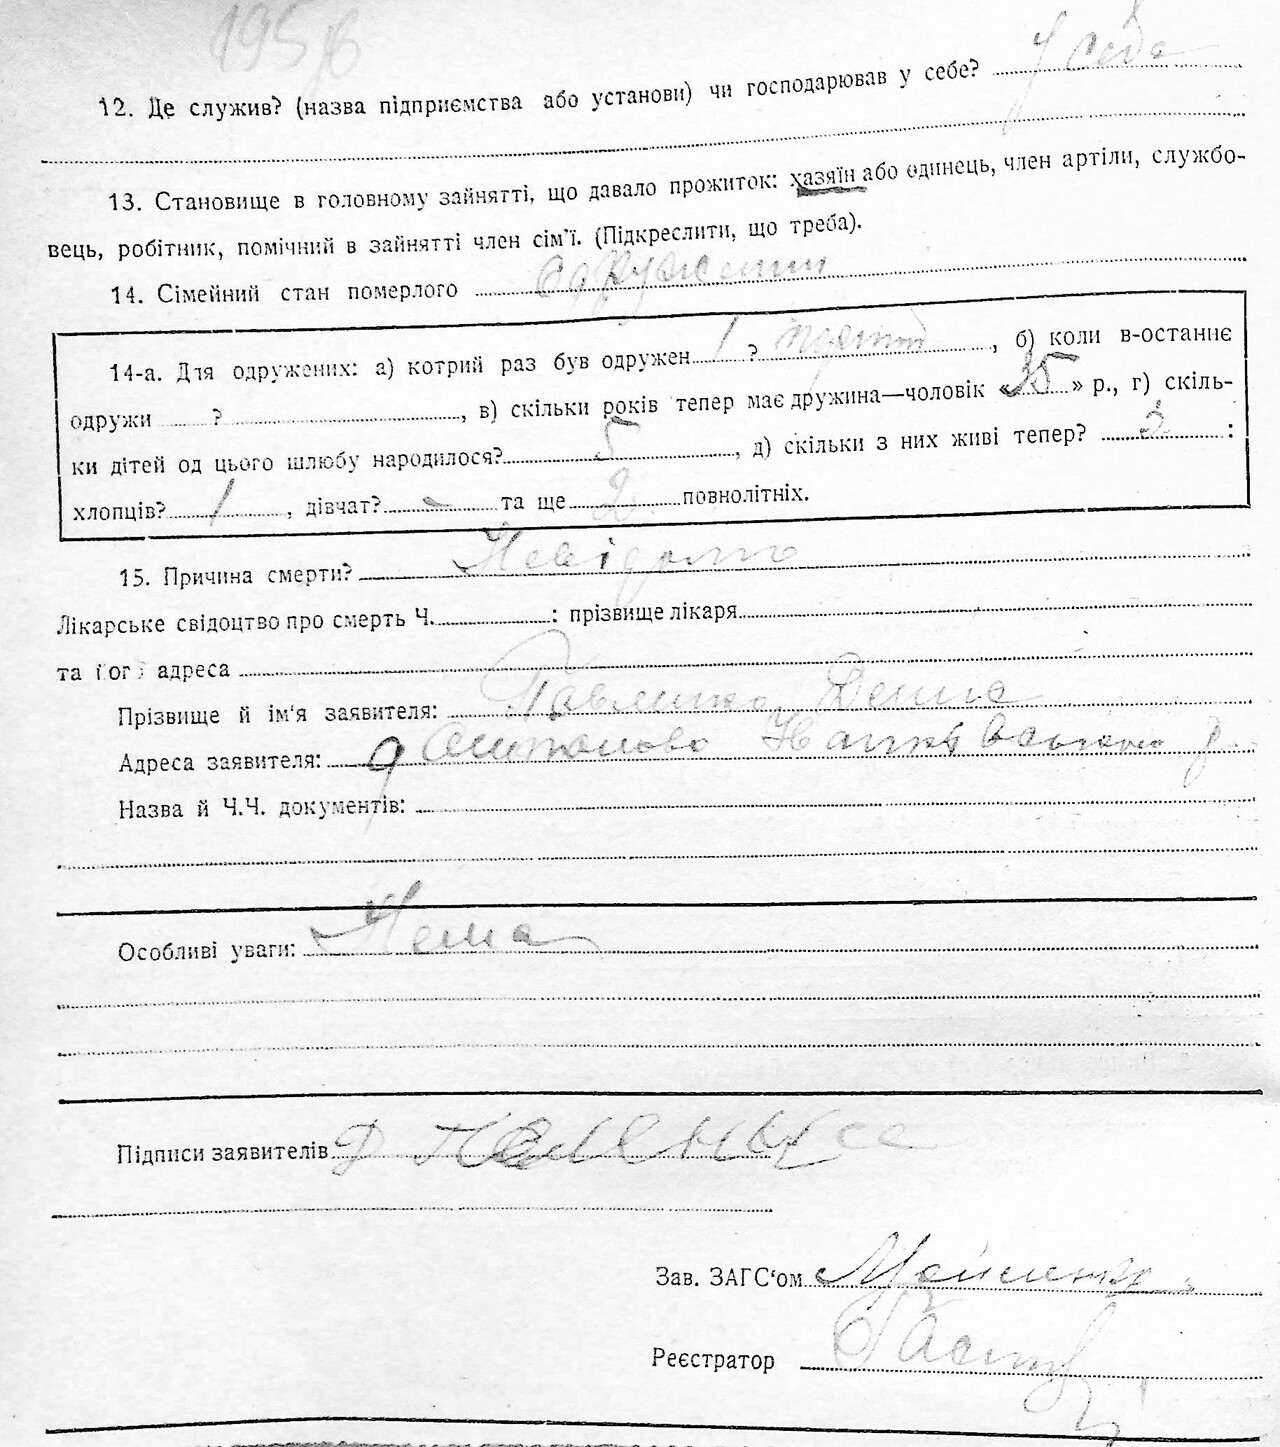 195
12. Де служив? (назва підприємства або установи) чи господарював у себе? У себе
13. Становище в головному зайнятті, що давало прожиток: хазяїн або одинець, член артіли, службо-
вець, робітник, помічний в зайнятті член сім'ї. (Підкреслити, що треба).
14. Сімейний стан померлого одружений
14-а. Для одружених: а) котрий раз був одружен 1 ? , б) коли в-останнє
одружи ? , в) скільки років тепер має дружина—чоловік «35» р., г) скіль-
ки дітей од цього шлюбу народилося? 5 , д) скільки з них живі тепер? 3 :
хлопців? 1 , дівчат? - та ще 2 повнолітніх.
15. Причина смерти? Невідомо
Лікарське свідоцтво про смерть Ч. : прізвище лікаря
та його адреса
Прізвище й ім'я заявителя: Денис
Адреса заявителя:
Назва й Ч.Ч. документів:
Особливі уваги: Нема
Підписи заявителів Д
Зав. ЗАГС'ом
Реєстратор